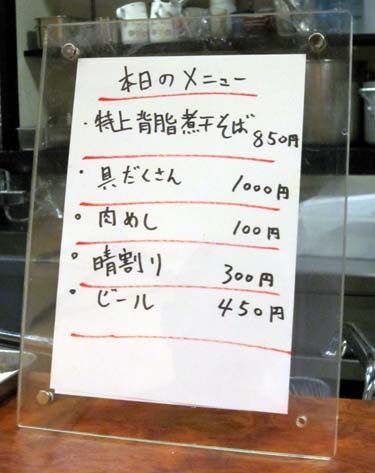 本日のメニュー
・特上背脂煮干そば 850円
・具だくさん 1000円
・肉めし 100円
・晴割り 300円
・ビール 450円